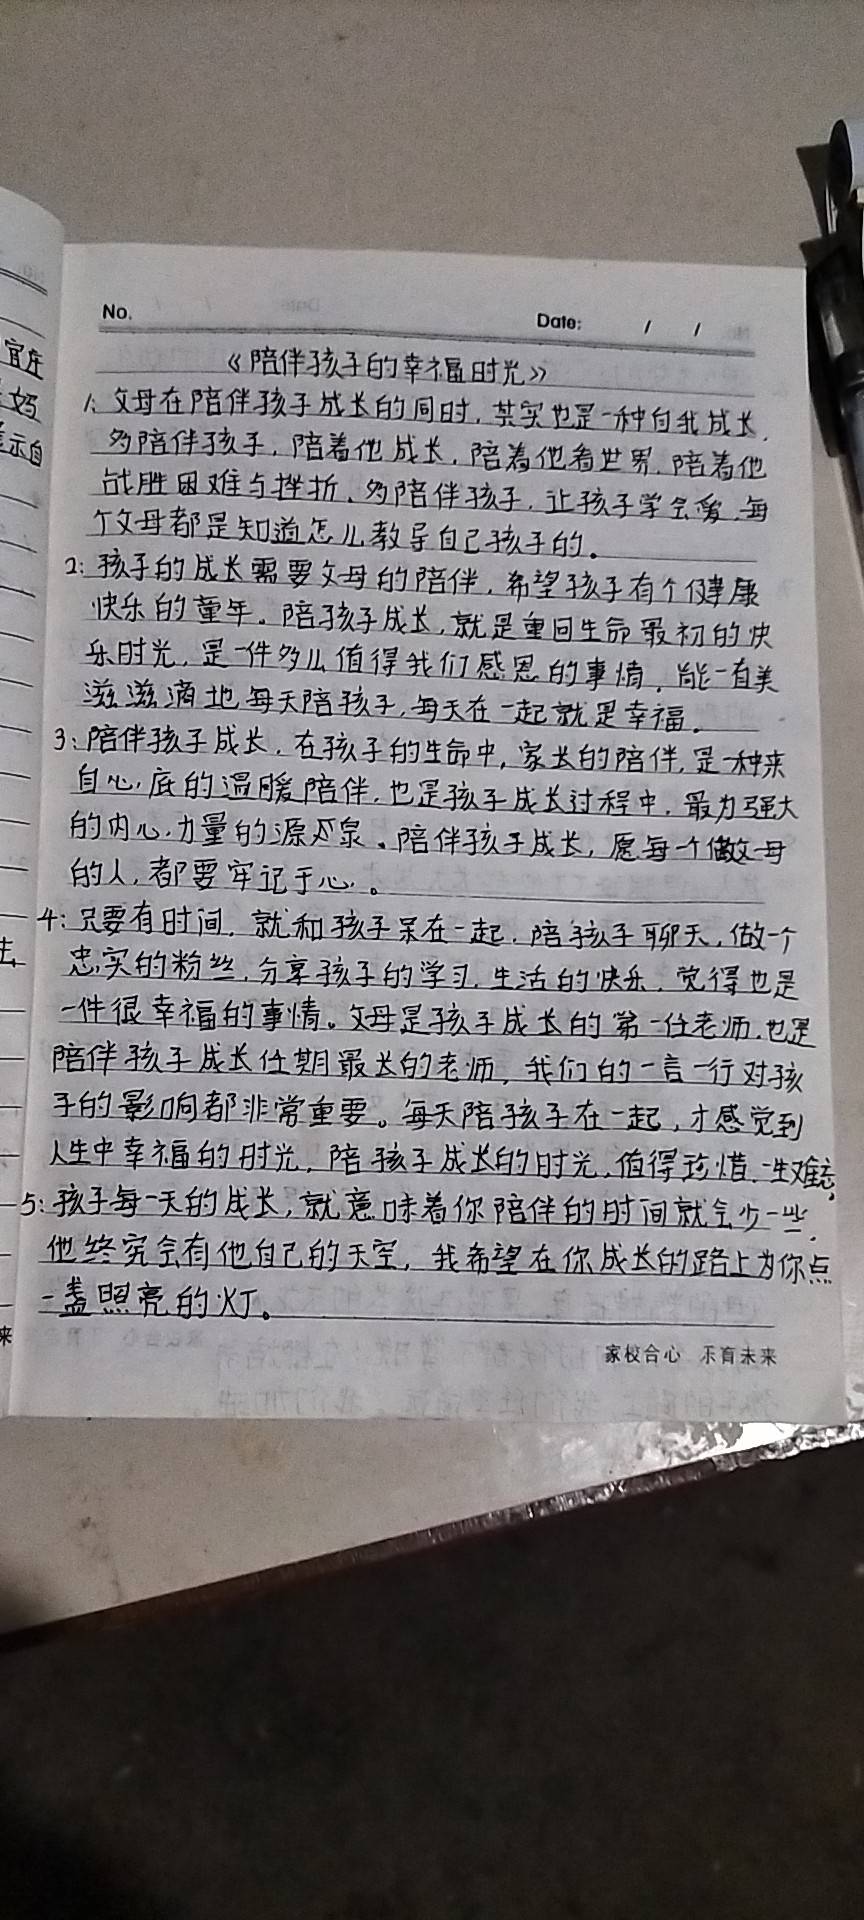 No.
Date: / /
宜在
妈
示自
《陪伴孩子的幸福时光》
1: 父母在陪伴孩子成长的同时,其实也是一种自我成长,
多陪伴孩子,陪着他成长,陪着他看世界,陪着他
战胜困难与挫折、多陪伴孩子,让孩子学会爱,每
个父母都是知道怎儿教导自己孩子的。
2: 孩子的成长需要父母的陪伴,希望孩子有个健康
快乐的童年。陪孩子成长,就是重回生命最初的快
乐时光,是一件多儿值得我们感恩的事情,能一直美
滋滋滴地每天陪孩子,每天在一起就是幸福。
3: 陪伴孩子成长,在孩子的生命中,家长的陪伴,是一种来
自心底的温暖陪伴,也是孩子成长过程中,最为强大
的内心力量的源泉。陪伴孩子成长,愿每一个做父母
的人,都要牢记于心。
4: 只要有时间,就和孩子呆在一起,陪孩子聊天,做一个
忠实的粉丝,分享孩子的学习,生活的快乐,觉得也是
一件很幸福的事情。父母是孩子成长的第一任老师,也是
陪伴孩子成长任期最长的老师,我们的一言一行对孩
子的影响都非常重要。每天陪孩子在一起,才感觉到
人生中幸福的时光,陪孩子成长的时光,值得珍惜,一生难忘,
5: 孩子每一天的成长,就意味着你陪伴的时间就会少一些,
他终究会有他自己的天空,我希望在你成长的路上为你点
一盏照亮的灯。
家校合心 禾育未来
来